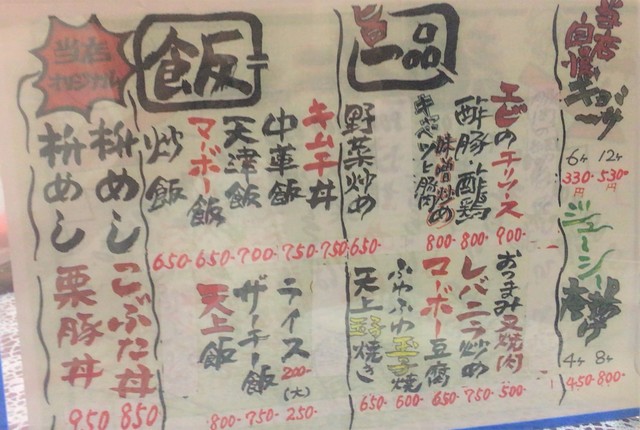 当店
自慢
ギョーザ
6ヶ 330円
12ヶ 530円
ジューシー
唐揚げ
4ヶ 450-
8ヶ 800-
旨
一品
エビのチリソース 900-
酢豚・酢鶏 800-
キャベツと豚肉
味噌炒め 800-
野菜炒め 650-
おつまみ叉焼肉 500-
レバニラ炒め 750-
マーボー豆腐 650-
ふわふわ玉子焼 600-
天上豚焼き 650-
飯
キムチ丼 750-
中華飯 750-
天津飯 700-
マーボー飯 650-
炒飯 650-
ライス 200-
(大) 250-
ザーチー飯 750-
天上飯 800-
当店
オリジナル
枡めし
こぶた丼 850
枡めし
栗豚丼 950